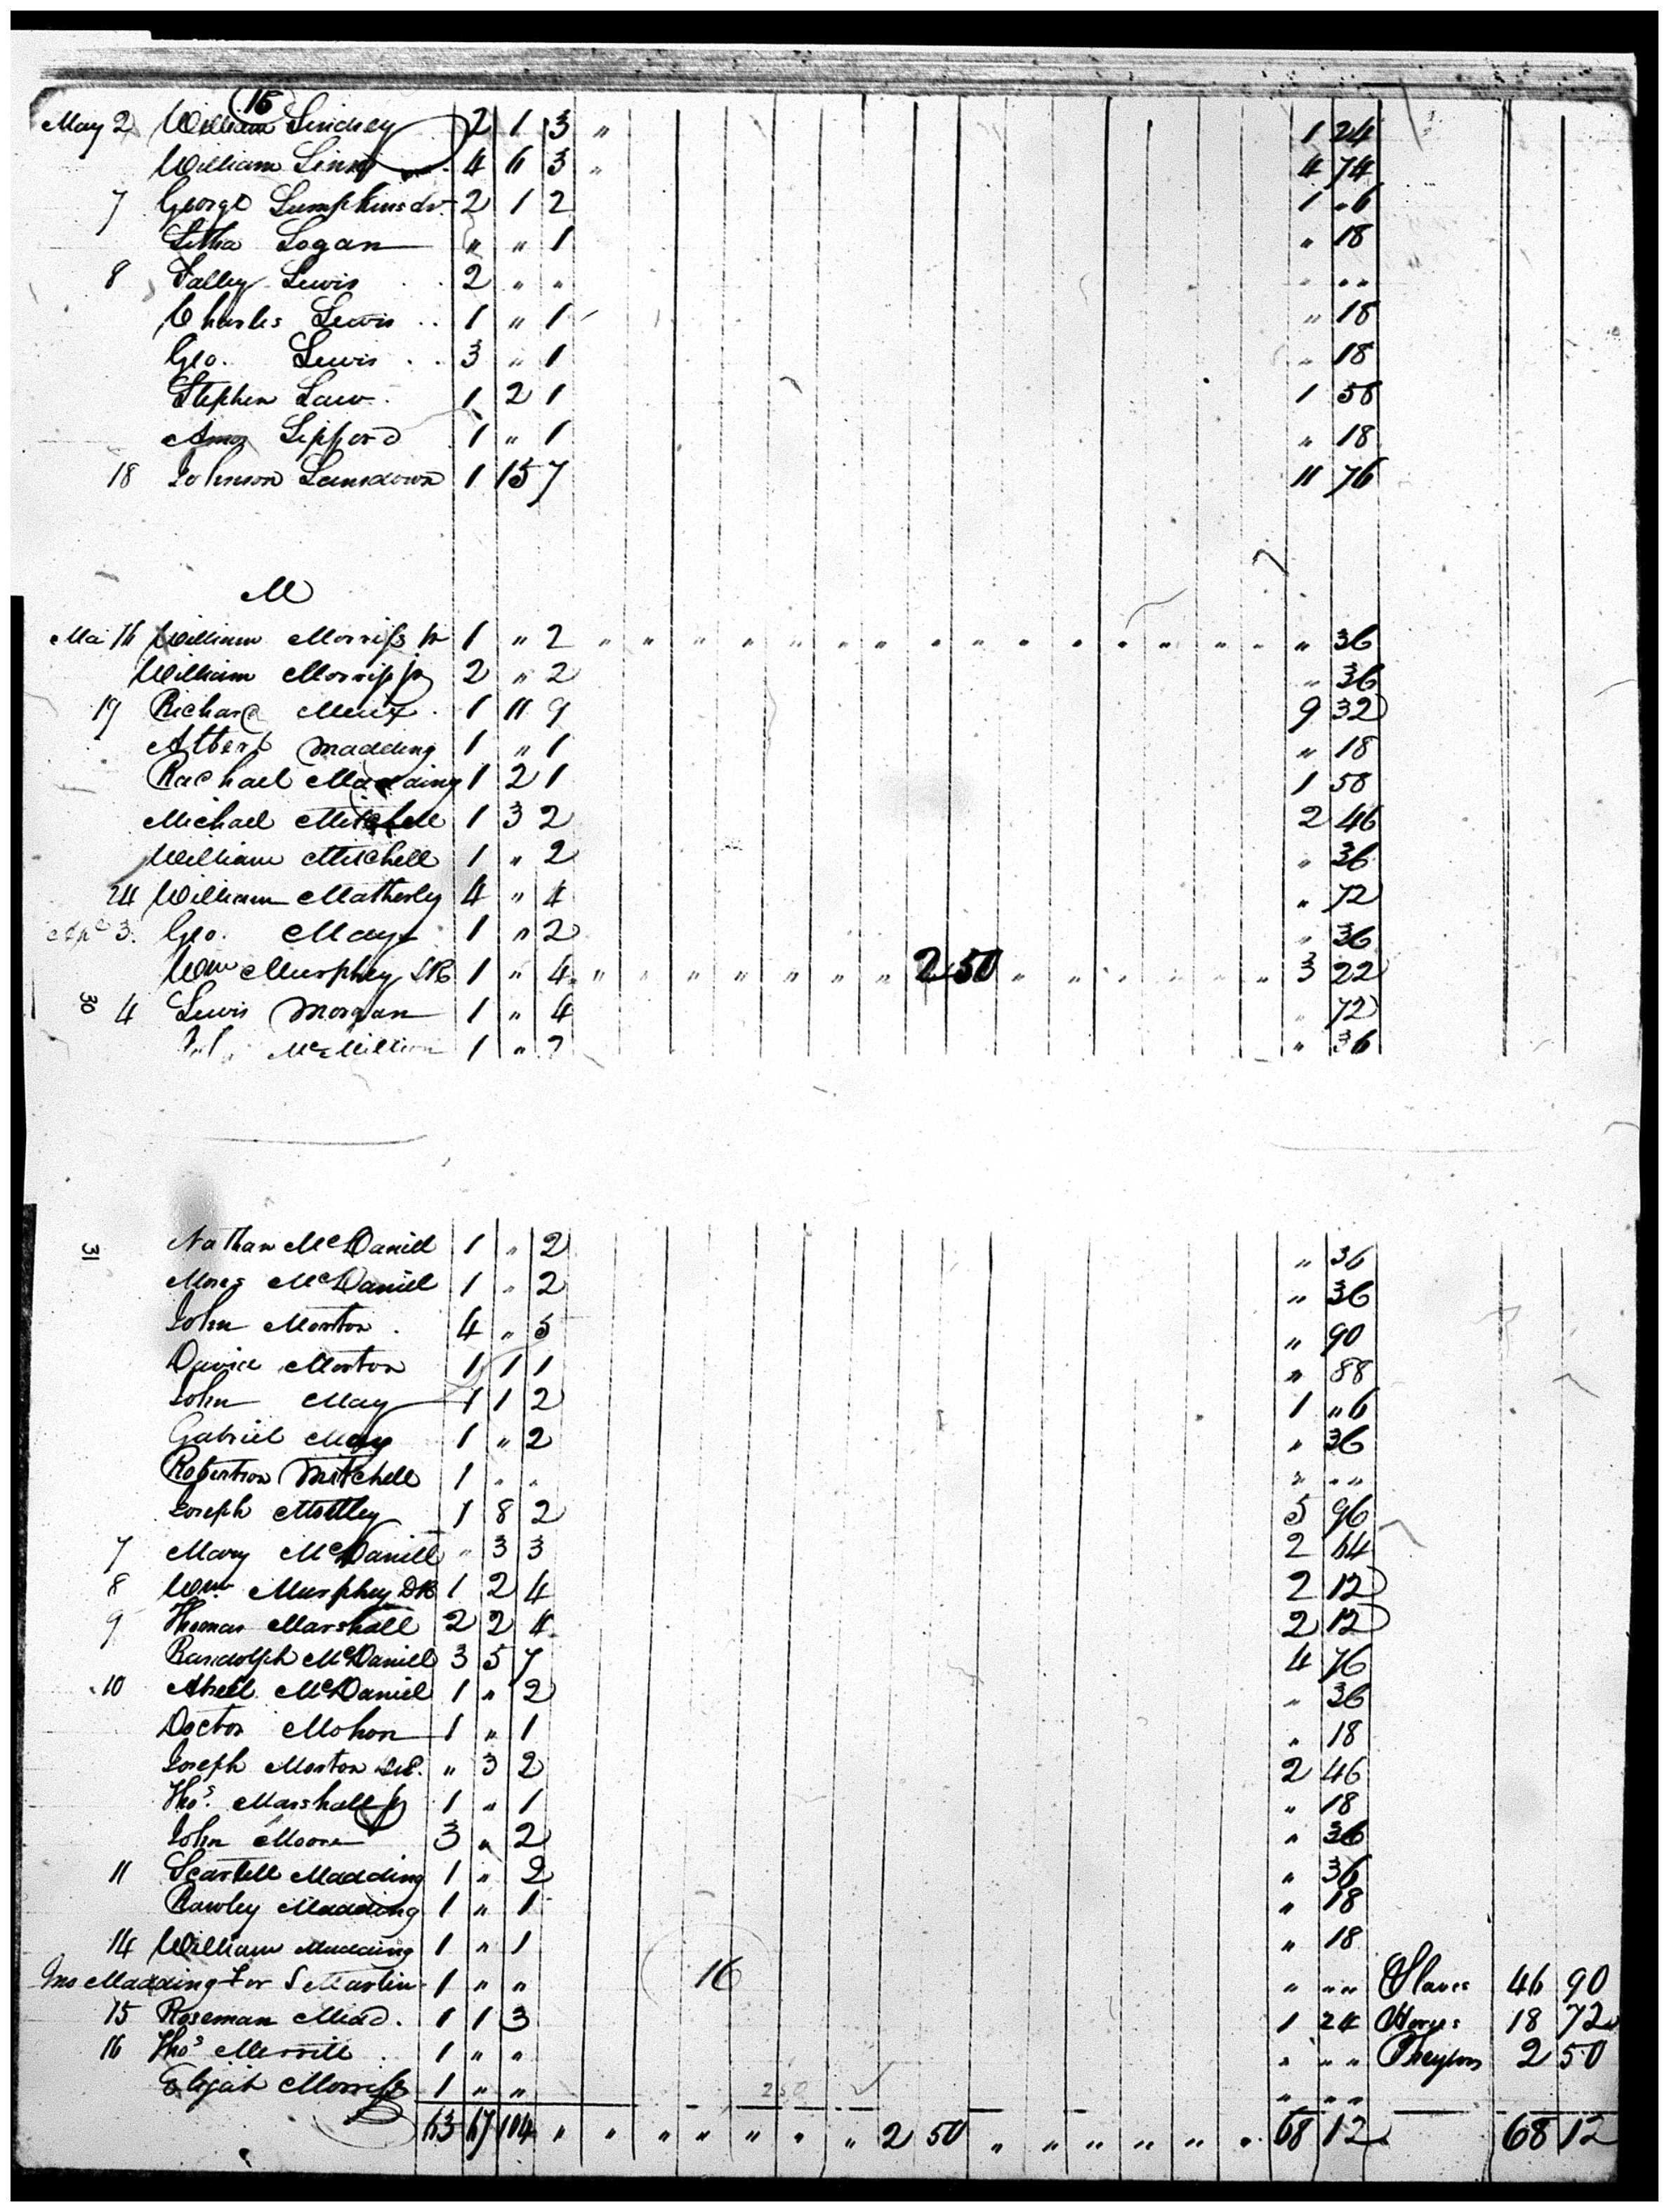 15
May 2 William Lindsey 2 1 3 " 1 24
William Linn 4 6 3 " 4 74
7 George Lumpkins dr 2 1 2 1 "6
Litha Logan " " 1 " 18
8 Salley Lewis 2 " " " ""
Charles Lewis 1 " 1 " 18
Geo. Lewis 3 " 1 " 18
Stephen Law 1 2 1 1 58
Amos Lipford 1 " 1 " 18
18 Johnson Lansdown 1 15 7 11 76
M
Ma 16 William Morriss 1 " 2 " " " " " " " " " " " " " " " " 36
William Morriss jr 2 " 2 " 36
19 Richard Meux 1 11 9 9 32
Albert Madding 1 " 1 " 18
Rachael Madding 1 2 1 1 58
Michael Mitchell 1 3 2 2 46
William Mitchell 1 " 2 " 36
24 William Matherly 4 " 4 " 72
Apl 3. Geo. Mays 1 " 2 " 36
Wm Murphey SR 1 " 4 " " " " " " " 2 50 " " " " " " 3 22
30 4 Lewis Morgan 1 " 4 " 72
McMillion 1 " 2 " 36
31 Nathan McDaniel 1 " 2 " 36
Moses McDaniel 1 " 2 " 36
John Morton 4 " 5 " 90
David Morton 1 1 1 " 88
John May 1 1 2 1 "6
Gabriel May 1 " 2 " 36
Robertson Mitchell 1 " " " ""
Joseph Mottley 1 8 2 5 96
7 Mary McDaniel " 3 3 2 64
8 Wm Murphey DR 1 2 4 2 12
9 Thomas Marshall 2 2 4 2 12
Randolph McDaniel 3 5 7 4 76
10 Abell McDaniel 1 " 2 " 36
Doctor Mohon 1 " 1 " 18
Joseph Morton " 3 2 2 46
Thos. Marshall jr 1 " 1 " 18
John Moore 3 " 2 " 36
11 Scartell Madding 1 " 2 " 36
Rawley Madding 1 " 1 " 18
14 William Madding 1 " 1 " 18
Jno Madding for S Martin 1 " " 16 " "" Slaves 46 90
15 Roseman Mead. 1 1 3 1 24 Horses 18 72
16 Thos Merrill 1 " " " "" Pheytons 2 50
Elijah Morriss 1 " " 250 " ""
63 67 104 " " " " " " " 2 50 " " " " " " 68 12 68 12